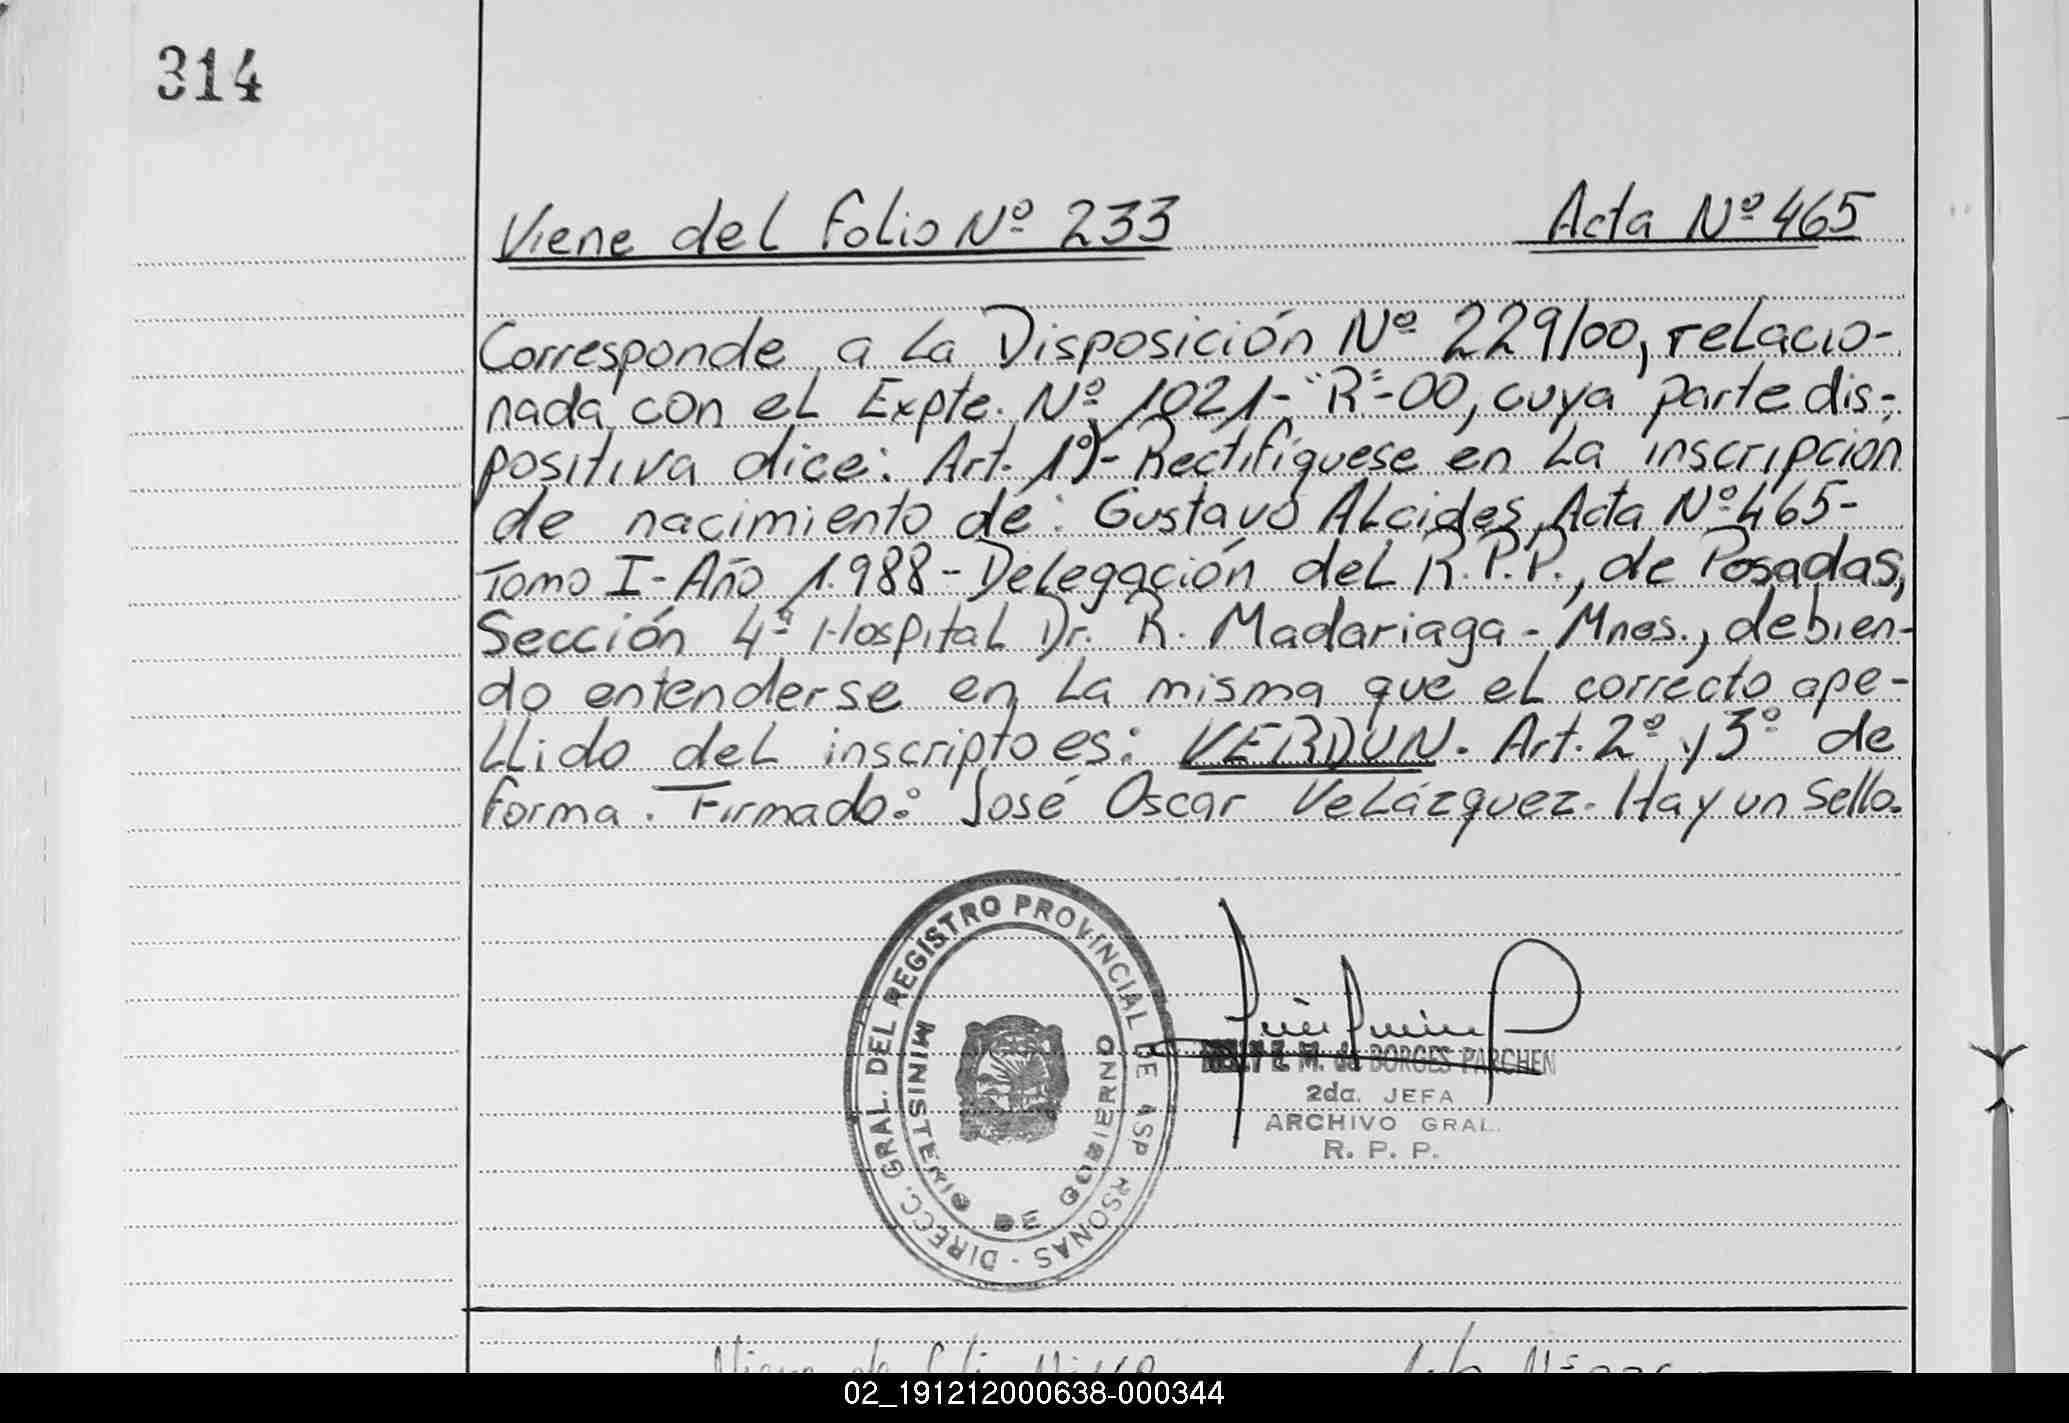 314
Viene del Folio Nº 233 Acta Nº 465
Corresponde a la Disposición Nº 229/00, relacio-
nada con el Expte. Nº 1021-"R"-00, cuya parte dis-
positiva dice: Art. 1º)- Rectifíquese en la inscripción
de nacimiento de: Gustavo Alcides, Acta Nº 465-
Tomo I- Año 1.988- Delegación del R.P.P., de Posadas,
Sección 4ª Hospital Dr. R. Madariaga - Mnes., debien-
do entenderse en la misma que el correcto ape-
llido del inscripto es: VERDUN. Art. 2º y 3º de
forma. Firmado: José Oscar Velázquez. Hay un sello.
DIRECC. GRAL. DEL REGISTRO PROVINCIAL DE AS P RSONAS
MINISTERIO DE GOBIERNO
E. M. de BORGES PARCHEN
2da. JEFA
ARCHIVO GRAL.
R. P. P.
02_191212000638-000344